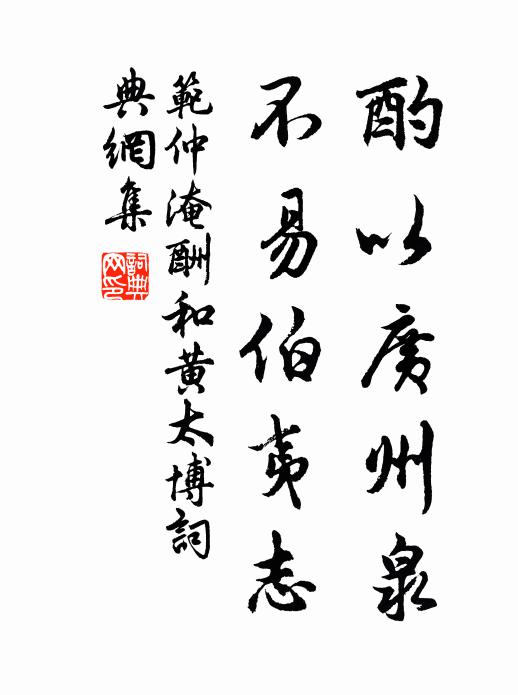 酌以廣州泉
不易伯夷志
範仲淹酬和黃太博詞
典網集
詞典
网印